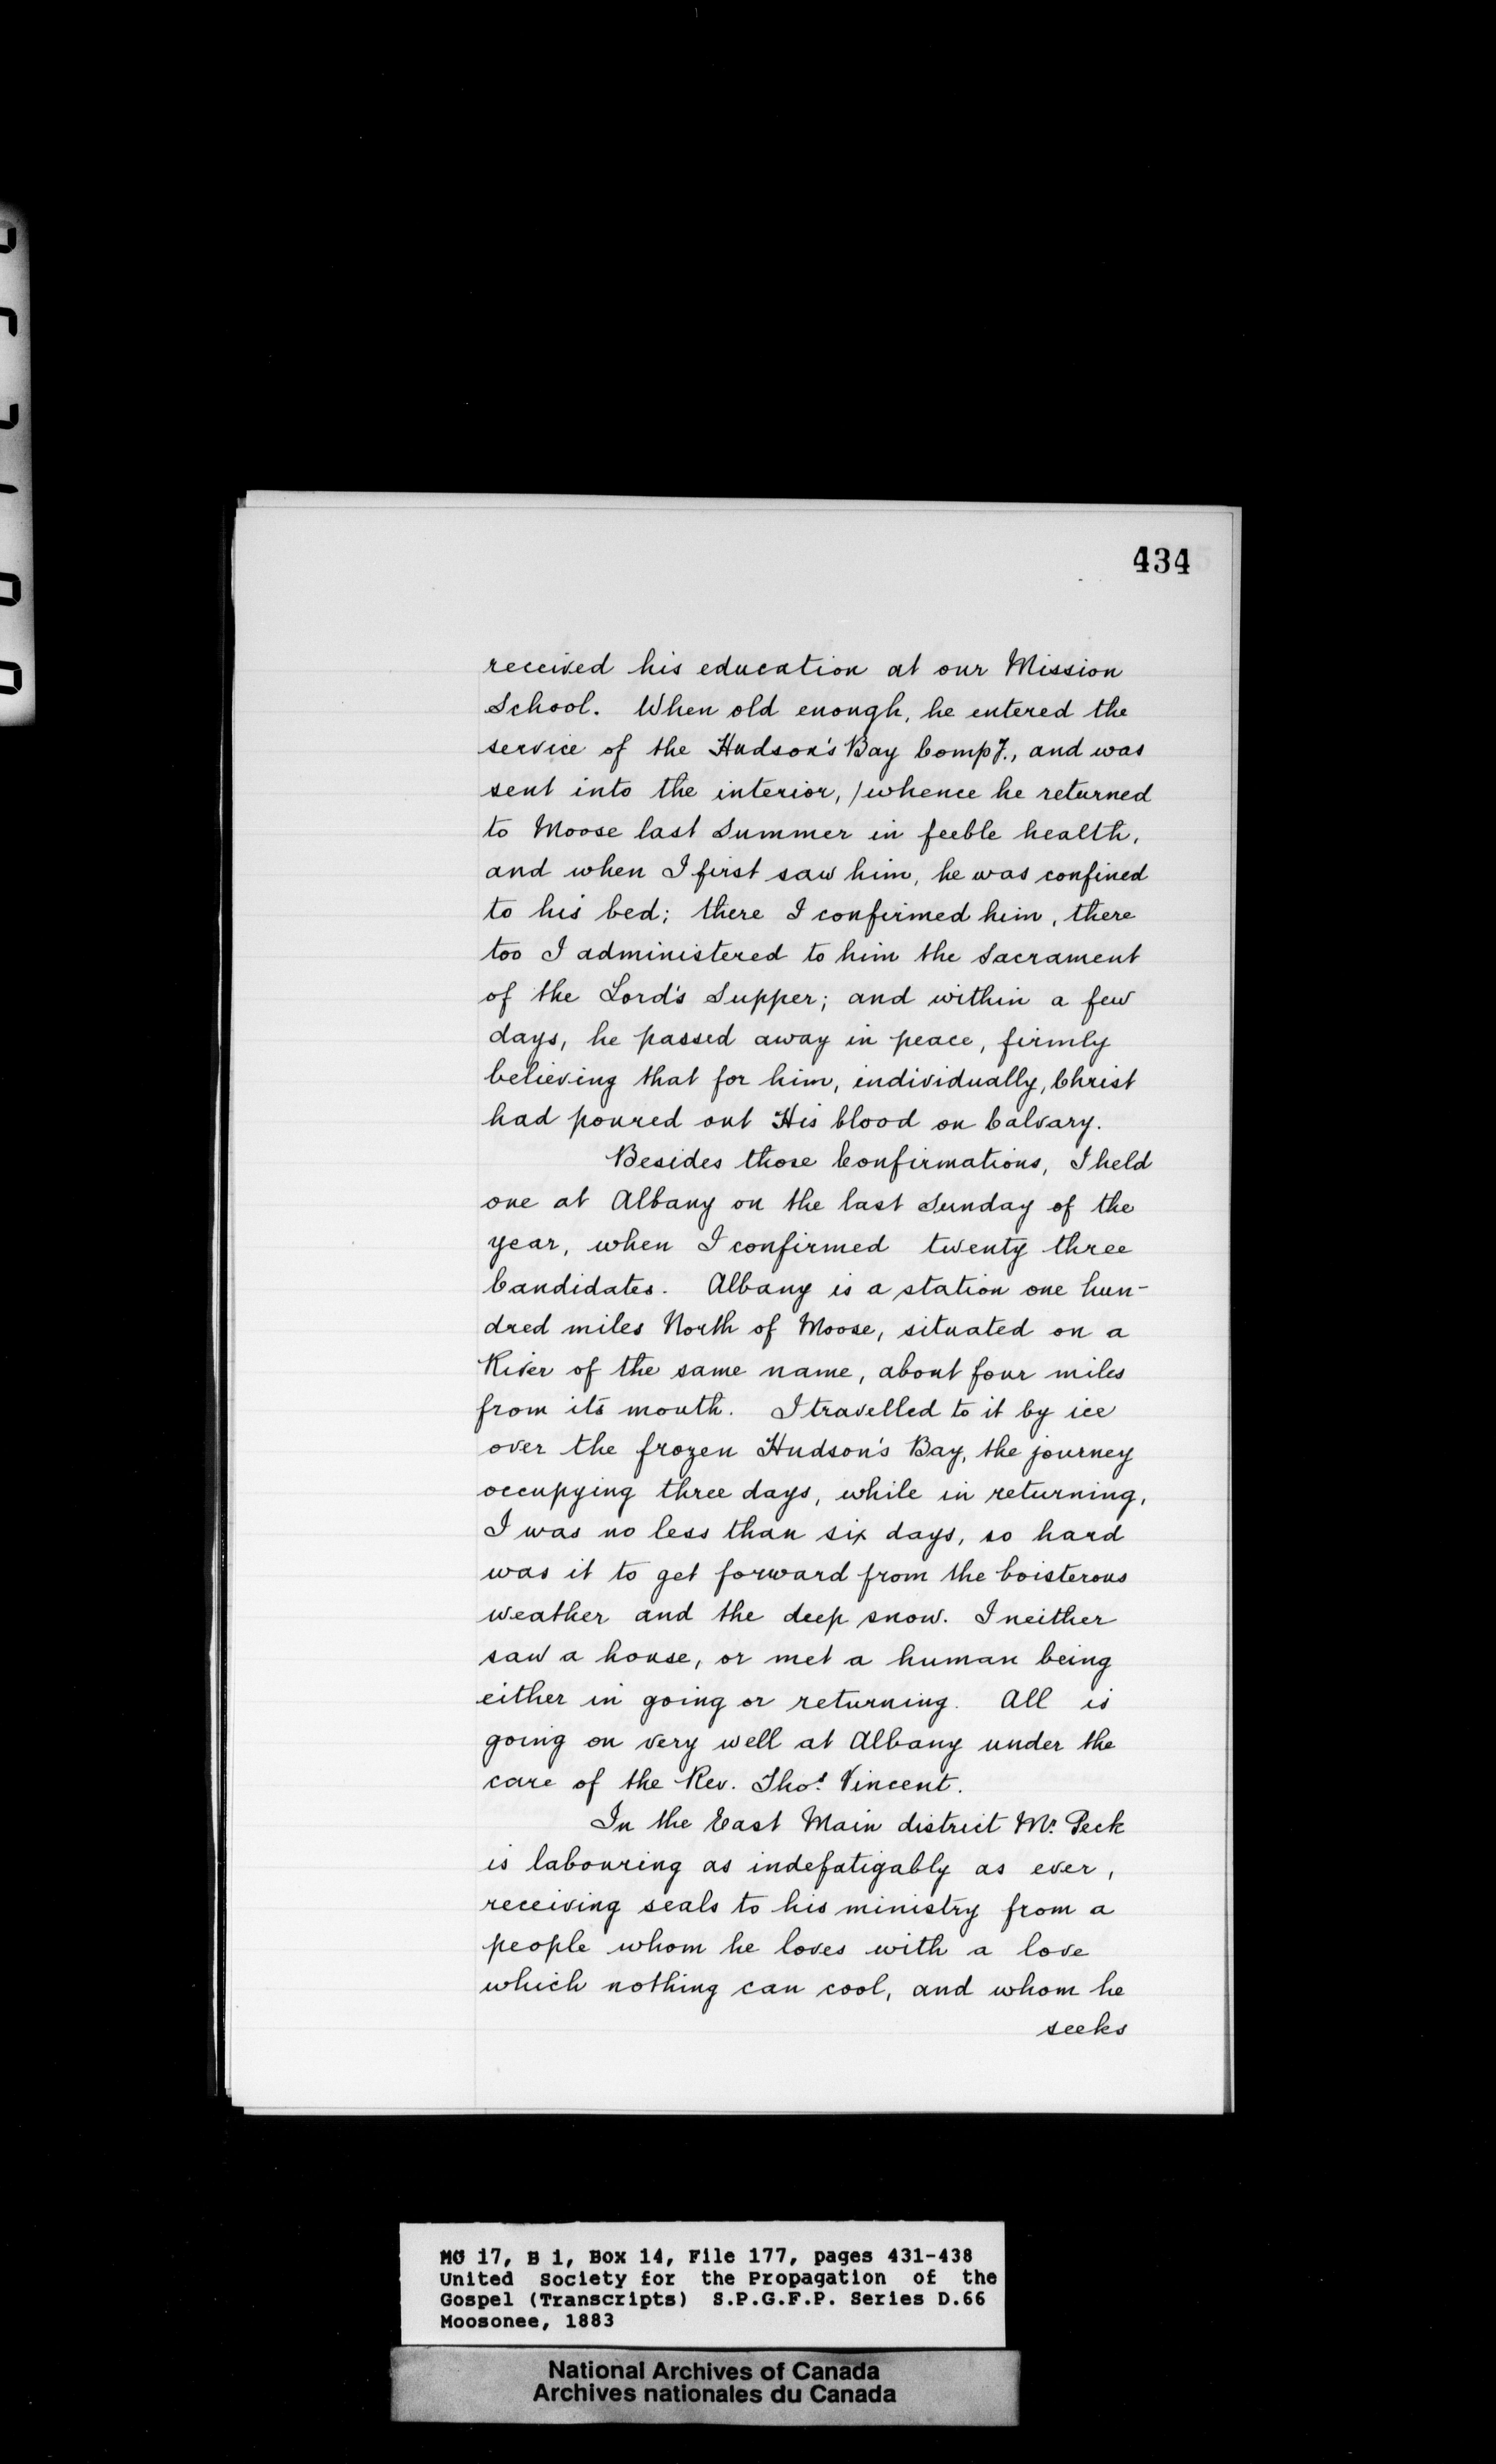 434
received his education at our Mission
School. When old enough, he entered the
service of the Hudson's Bay Compy., and was
sent into the interior, /whence he returned
to Moose last Summer in feeble health,
and when I first saw him, he was confined
to his bed; there I confirmed him, there
too I administered to him the Sacrament
of the Lord's Supper; and within a few
days, he passed away in peace, firmly
believing that for him, individually, Christ
had poured out His blood on Calvary.
Besides those Confirmations, I held
one at Albany on the last Sunday of the
year, when I confirmed twenty three
Candidates. Albany is a station one hun-
dred miles North of Moose, situated on a
River of the same name, about four miles
from its mouth. I travelled to it by ice
over the frozen Hudson's Bay, the journey
occupying three days, while in returning,
I was no less than six days, so hard
was it to get forward from the boisterous
weather and the deep snow. I neither
saw a house, or met a human being
either in going or returning. All is
going on very well at Albany under the
care of the Rev. Thos. Vincent.
In the East Main district Mr. Peck
is labouring as indefatigably as ever,
receiving seals to his ministry from a
people whom he loves with a love
which nothing can cool, and whom he
seeks
MG 17, B 1, Box 14, File 177, pages 431-438
United Society for the Propagation of the
Gospel (Transcripts) S.P.G.F.P. Series D.66
Moosonee, 1883
National Archives of Canada
Archives nationales du Canada